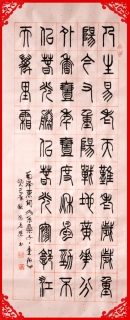 人生易老天難老歲歲重
陽今又重陽戰地黃花分
外香壹年壹度秋風勁不
佀春光勝佀春光寥廓江
天萬里霜
毛澤東詞采桑子重陽